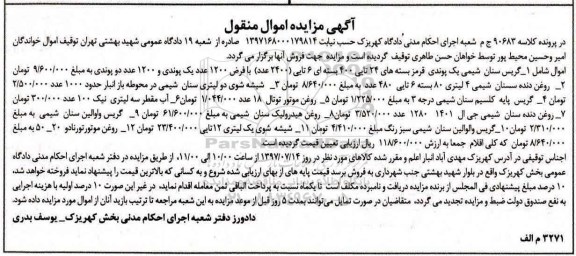 آگهی مزایده اموال منقول
در پرونده کلاسه ۹۰۶۸۳ ج م شعبه اجرای احکام مدنی دادگاه کهریزک حسب نیابت ۱۳۹۷۱۶۸۰۰۰۱۷۹۸۱۴ صادره از شعبه ۱۹ دادگاه عمومی شهید بهشتی تهران توقیف اموال خواندگان
امیر وحسین محیط پور توسط خواهان حسن طاهری توقیف گردیده است و مزایده جهت فروش آنها برگزار می گردد.
اموال شامل ۱_گریس سنان شیمی یک پوندی قرمز بسته های ۲۴ تایی ۴۰۰ بسته ای ۶ تایی (۲۴۰۰ عدد) با فرض ۱۲۰۰ عدد یک پوندی و ۱۲۰۰ عدد دو پوندی به مبلغ ۹/۶۰۰/۰۰۰ تومان
۲_ روغن دنده سنان شیمی ۴ لیتری ۸۰ بسته ۶ تایی ۴۸۰ عدد به مبلغ ۸/۶۴۰/۰۰۰ تومان ۳_ شیشه شوی دو لیتری سنان شیمی در محوطه باز انبار حدود ۱۰۰۰ عدد ۲/۵۰۰/۰۰۰
تومان ۴_ گریس پایه کلسیم سنان شیمی درجه ۳ به مبلغ ۱/۲۲۵/۰۰۰ تومان ۵_ روغن موتور توتال ۱۸ عدد ۱/۰۴۴/۰۰۰ تومان۶_ آب مقطر سه لیتری نیک ۱۰۰ عدد ۳۰۰/۰۰۰ تومان
۷_ روغن دنده سنان شیمی جی ال ۱۴۰۱ ۱۲۸۰ عدد ۳/۵۲۰/۰۰۰ تومان ۸_ روغن هیدرولیک سنان شیمی به مبلغ ۶۱/۶۰۰/۰۰۰ تومان ۹_گریس والوالین سنان شیمی به مبلغ
۲/۳۱۰/۰۰۰ تومان۱۰_گریس والوالین سنان شیمی سبز رنگ مبلغ ۴/۴۱۰/۰۰۰ تومان ۱۱_ شیشه شوی یک لیتری ۱۲تایی ۲۳/۴۰۰/۰۰۰ تومان ۱۲_ روغن موتور تورنادو ۲۰_۵۰ به مبلغ
۸/۶۴۰/۰۰۰ تومان که کلی اقلام جمعا به ارزش ۱۱۸/۶۰۰/۰۰۰ ریال ارزیابی تعیین قیمت گردیده است
اجناس توقیفی در آدرس کهریزک مهدی آباد انبار اعلم و مقرر شده کالاهای مورد نظر در روز ۱۳۹۷/۰۷/۱۴ از ساعت ۱۰/۰۰ الی ۱۱/۰۰، از طریق مزایده در دفتر شعبه اجرای احکام مدنی دادگاه
عمومی بخش کهریزک واقع در بلوار شهید بهشتی جنب شهرداری به فروش برسد قیمت پایه های از بهای ارزیابی شده شروع و به کسانی که بالاترین قیمت را پیشنهاد نماید فروخته خواهد شد،
۱۰ درصد مبلغ پیشنهادی فی المجلس از برنده مزایده دریافت و نامبرده مکلف است تا یکماه نسبت به پرداخت الباقی ثمن معامله اقدام نماید، در غیر این صورت ۱۰ درصد اولیه با هزینه اجرایی
به نفع صندوق دولت ضبط و مزایده تجدید می گردد، متقاضیان در صورت تمایل می‌توانند بمدت ۵ روز قبل از موعد مزایده به این شعبه مراجعه تا ترتیب بازید آنان از اموال مورد مزایده داده شود.
دادورز دفتر شعبه اجرای احکام مدنی بخش کهریزک_ یوسف بدری
۳۲۷۱ م الف